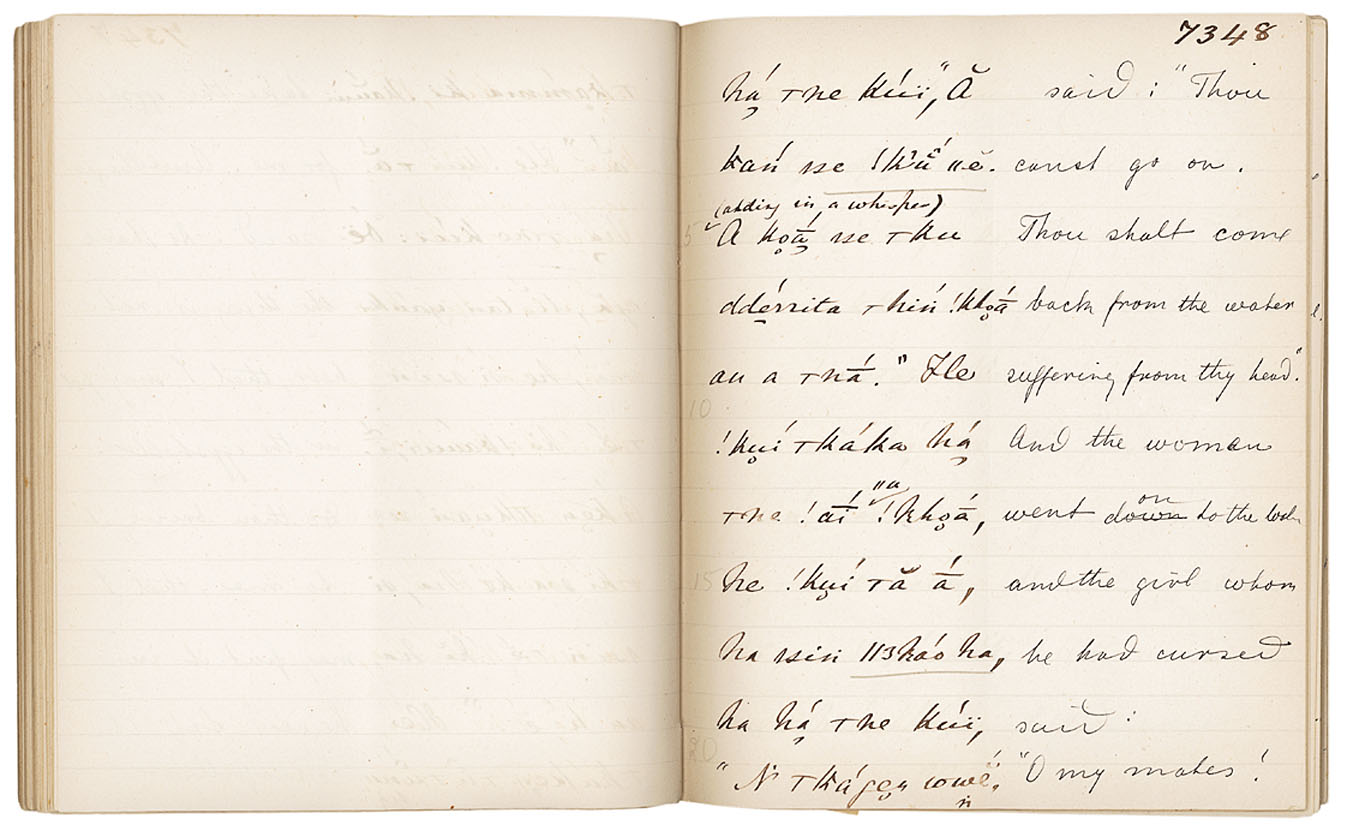 7348
há̭ ꞇne kúï," Ă said: "Thou
kań sse !kŭ́ı̋ ǁĕ. canst go on.
(adding in a whisper)
5 A kọā̭́ sse ꞇku Thou shalt come
ddérrita ꞇhiń !khọā́ back from the water
au a ꞇnā́." He suffering from thy head."
10
!kụí ꞇkáka há̭ And the woman
ǁa
ꞇne !āí !khọā́, went down to the water
on
15 he !kụí ꞇă ā́, and the girl whom
ha ssin ǁʒkáo ha, he had cursed
ha há̭ ꞇne kúï, said:
20
"N ꞇkágen wwĕ́, "O my mates!